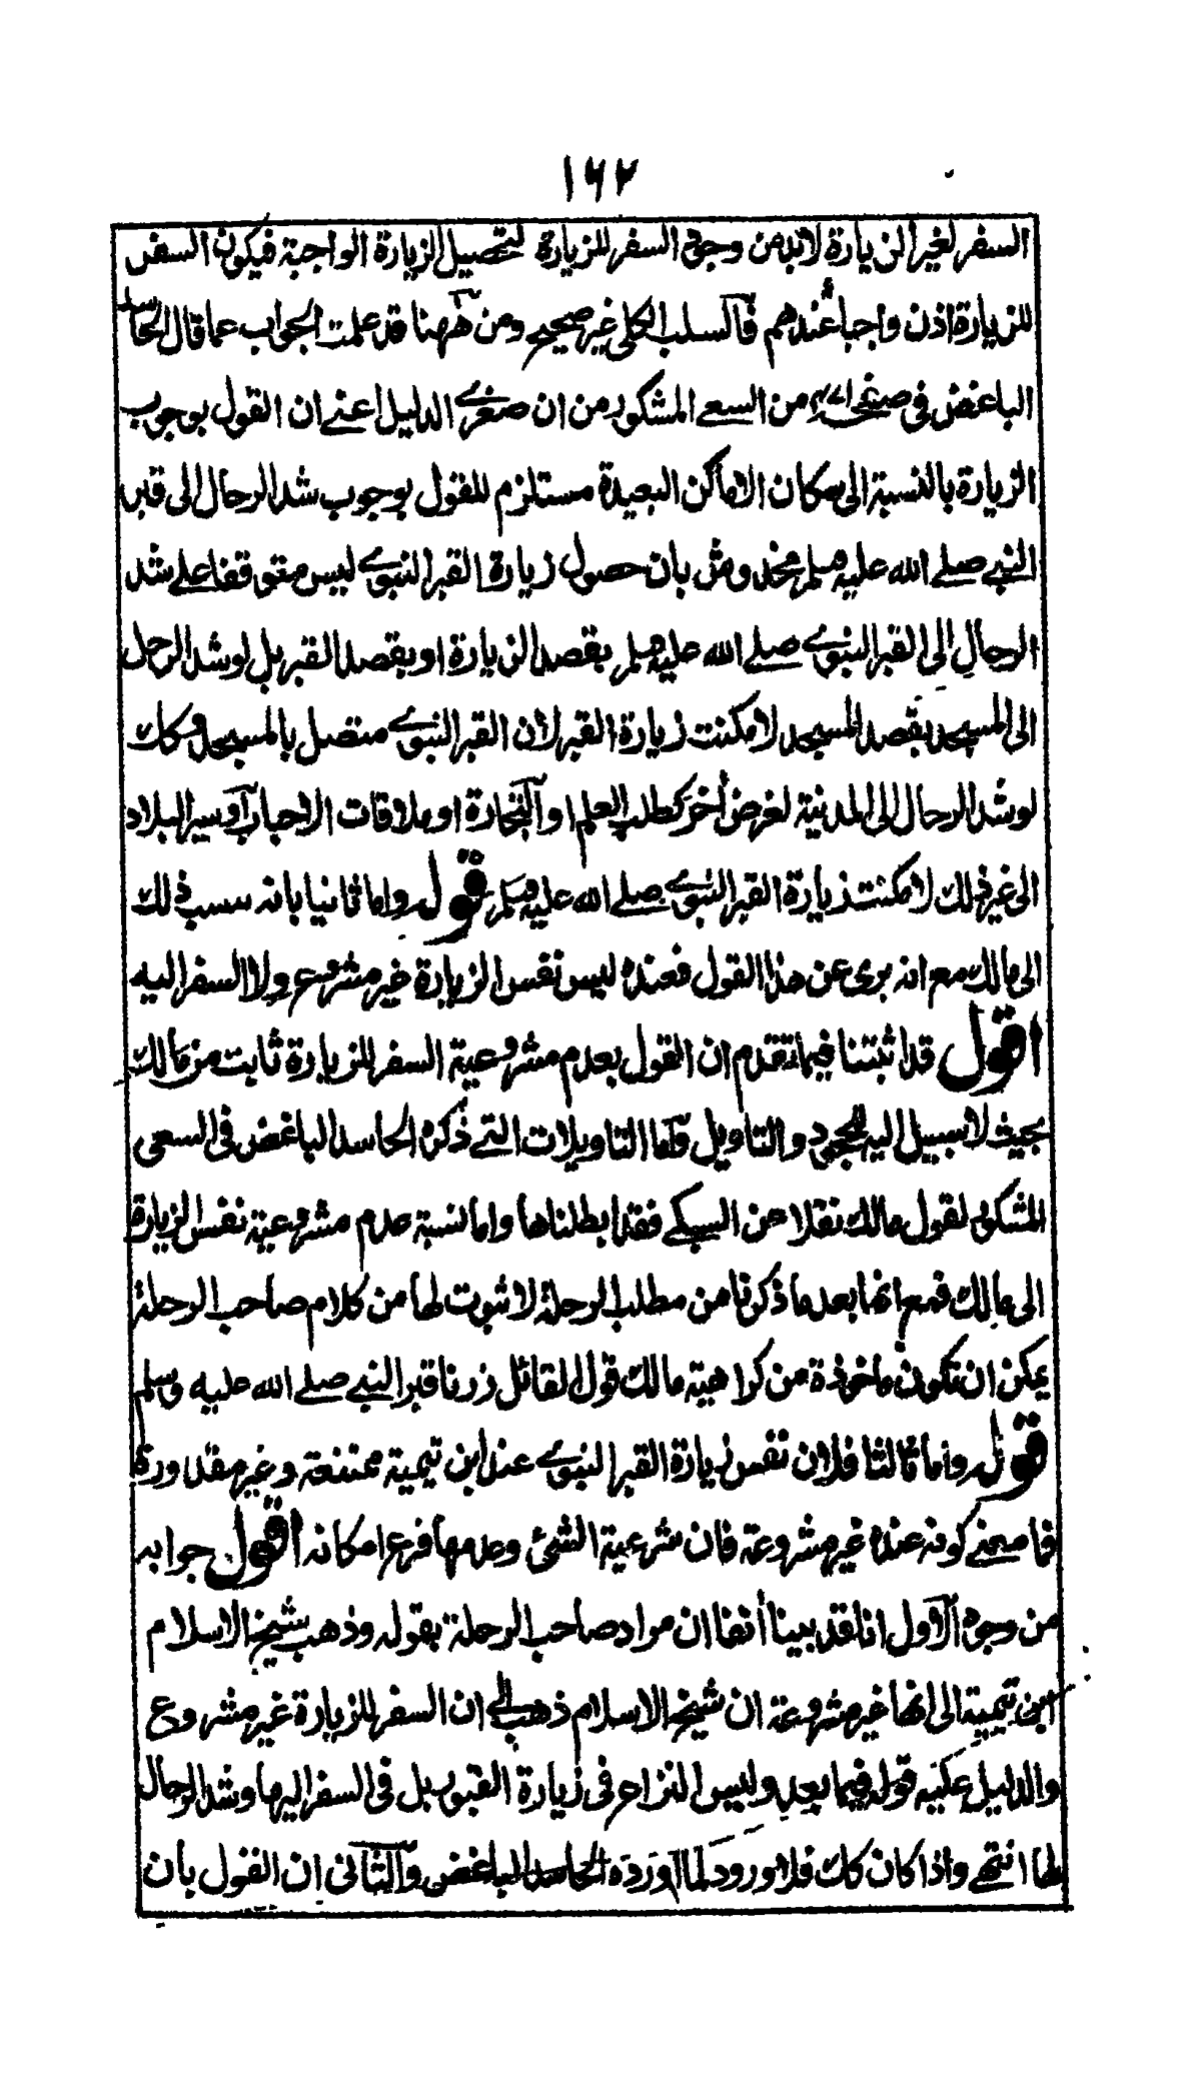 ١٦٢
السفر لغير الزيارة لابد من وجوب السفر للزيارة لتحصيل الزيارة الواجبة فيكون السفر
للزيارة اذن واجبا عندهم فالسلب الكلى غير صحيح ومن ههنا قد علمت الجواب عما قال الحاسد
الباغض فى صفحة من السعى المشكور من ان صغرى الدليل اعنى ان القول بوجوب
الزيارة بالنسبة الى سكان الاماكن البعيدة مستلزم للقول بوجوب شد الرحال الى قبر
النبى صلى الله عليه وسلم مخدوش بان حصول زيارة القبر النبوى ليس متوقفا على شد
الرحال الى القبر النبوى صلى الله عليه وسلم بقصد الزيارة او بقصد القبر بل لو شد الرحل
الى المسجد بقصد المسجد لامكنت زيارة القبر لان القبر النبوى متصل بالمسجد وكك
لو شد الرحال الى المدينة لغرض أخر كطلب العلم او التجارة او ملاقات الاحباب او سير البلاد
الى غير ذلك لامكنت زيارة القبر النبوى صلى الله عليه وسلم قوله واما ثانيا بانه سبب ذلك
الى مالك مع انه برى عن هذا القول فعنده ليس نفس الزيارة غير مشروع ولا السفر اليه
اقول قد اثبتنا فيما تقدم ان القول بعدم مشروعية السفر للزيارة ثابت من مالك
بحيث لا سبيل اليه للجحود والتاويل واما التاويلات التى ذكره الحاسد الباغض فى السعى
المشكور لقول مالك نقلا عن السبكى فقد ابطلناها واما نسبة عدم مشروعية نفس الزيارة
الى مالك فمع انها بعد ما ذكرنا من مطلب الرحلة لا ثبوت لها من كلام صاحب الرحلة
يمكن ان تكون ماخوذة من كراهية مالك قول القائل زرنا قبر النبى صلى الله عليه وسلم
قوله واما ثالثا فلان نفس زيارة القبر النبوى عند ابن تيمية ممتنعة وغير مقدورة
فما معنى كونه عنده غير مشروعة فان شرعية الشئ وعدمها فرع امكانه اقول جوابه
من وجوه الاول انا لقد بينا أنفا ان مراد صاحب الرحلة بقوله وذهب شيخ الاسلام
ابن تيمية الى انها غير مشروعة ان شيخ الاسلام ذهب الى ان السفر للزيارة غير مشروع
والدليل عليه قوله فيما بعد وليس النزاع فى زيارة القبور بل فى السفر اليها وشد الرحال
لها انتهى واذا كان كك فلا ورود لما اورده الحاسد الباغض والثانى ان القول بان